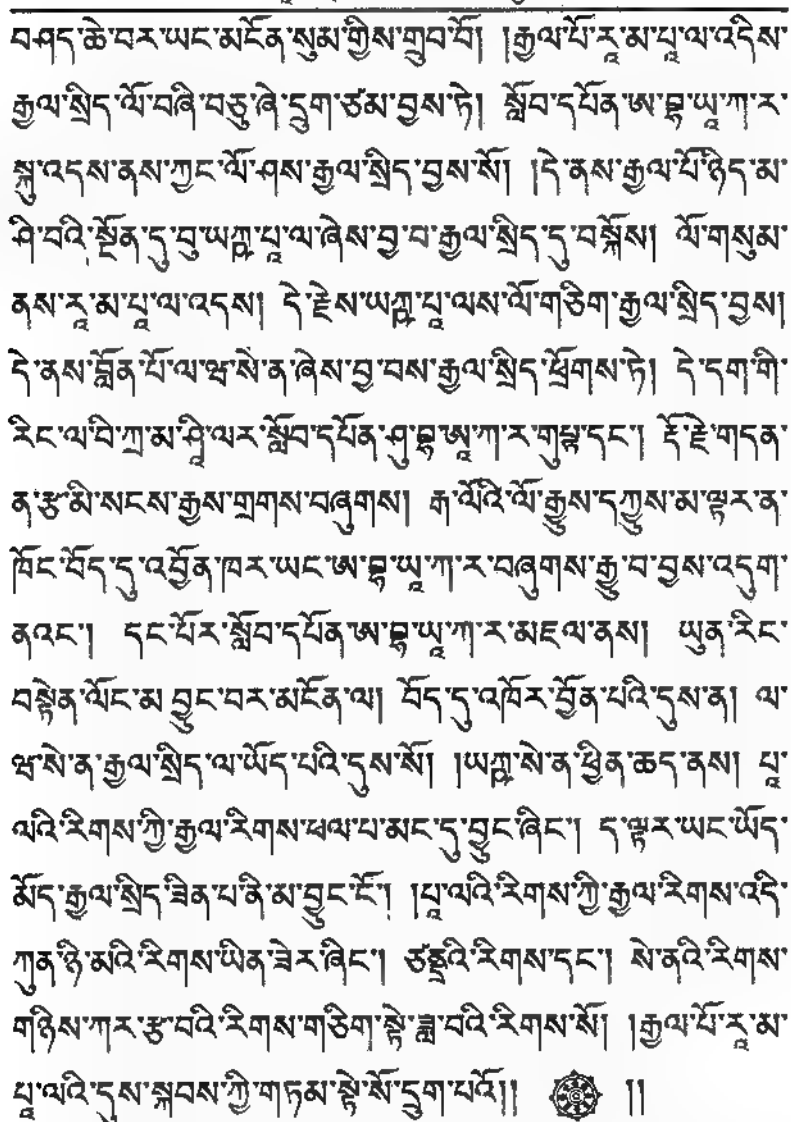 བཤད་ཆེ་བར་ཡང་མངོན་སུམ་གྱིས་གྲུབ་བོ། །རྒྱལ་པོ་རཱ་མ་པཱ་ལ་འདིས་
རྒྱལ་སྲིད་ལོ་བཞི་བཅུ་ཞེ་དྲུག་ཙམ་བྱས་ཏེ། སློབ་དཔོན་ཨ་བྷ་ཡཱ་ཀ་ར་
སྐུ་འདས་ནས་ཀྱང་ལོ་ཤས་རྒྱལ་སྲིད་བྱས་སོ། །དེ་ནས་རྒྱལ་པོ་ཉིད་མ་
ཤི་བའི་སྔོན་དུ་བུ་ཡཀྵ་པཱ་ལ་ཞེས་བྱ་བ་རྒྱལ་སྲིད་དུ་བསྐོས། ལོ་གསུམ་
ནས་རཱ་མ་པཱ་ལ་འདས། དེ་རྗེས་ཡཀྵ་པཱ་ལས་ལོ་གཅིག་རྒྱལ་སྲིད་བྱས།
དེ་ནས་བློན་པོ་ལ་ཝ་སེ་ན་ཞེས་བྱ་བས་རྒྱལ་སྲིད་ཕྲོགས་ཏེ། དེ་དག་གི་
རིང་ལ་བི་ཀྲ་མ་ཤཱི་ལར་སློབ་དཔོན་ཤུ་བྷ་ཨཱ་ཀ་ར་གུཔྟ་དང་། རྡོ་རྗེ་གདན་
ན་རྩ་མི་སངས་རྒྱས་གྲགས་བཞུགས། རྒ་ལོའི་ལོ་རྒྱུས་དཀྱུས་མ་ལྟར་ན་
ཁོང་བོད་དུ་འབྱོན་ཁར་ཡང་ཨ་བྷ་ཡཱ་ཀ་ར་བཞུགས་རྒྱུ་བ་བྱས་འདུག་
ནའང་། དང་པོར་སློབ་དཔོན་ཨ་བྷ་ཡཱ་ཀ་ར་མཇལ་ནས། ཡུན་རིང་
བསྟེན་ལོང་མ་བྱུང་བར་མངོན་ལ། བོད་དུ་འཁོར་བྱོན་པའི་དུས་ན། ལ་
ཝ་སེ་ན་རྒྱལ་སྲིད་ལ་ཡོད་པའི་དུས་སོ། །ཡཀྵ་སེ་ན་ཕྱིན་ཆད་ནས། པཱ་
ལའི་རིགས་ཀྱི་རྒྱལ་རིགས་ཕལ་པ་མང་དུ་བྱུང་ཞིང་། ད་ལྟར་ཡང་ཡོད་
མོད་རྒྱལ་སྲིད་ཟིན་པ་ནི་མ་བྱུང་ངོ་། །པཱ་ལའི་རིགས་ཀྱི་རྒྱལ་རིགས་འདི་
ཀུན་ཉི་མའི་རིགས་ཡིན་ཟེར་ཞིང་། ཙནྡྲའི་རིགས་དང་། སེ་ནའི་རིགས་
གཉིས་ཀར་རྩ་བའི་རིགས་གཅིག་སྟེ་ཟླ་བའི་རིགས་སོ། །རྒྱལ་པོ་རཱ་མ་
པཱ་ལའི་དུས་སྐབས་ཀྱི་གཏམ་སྟེ་སོ་དྲུག་པའོ།། །།